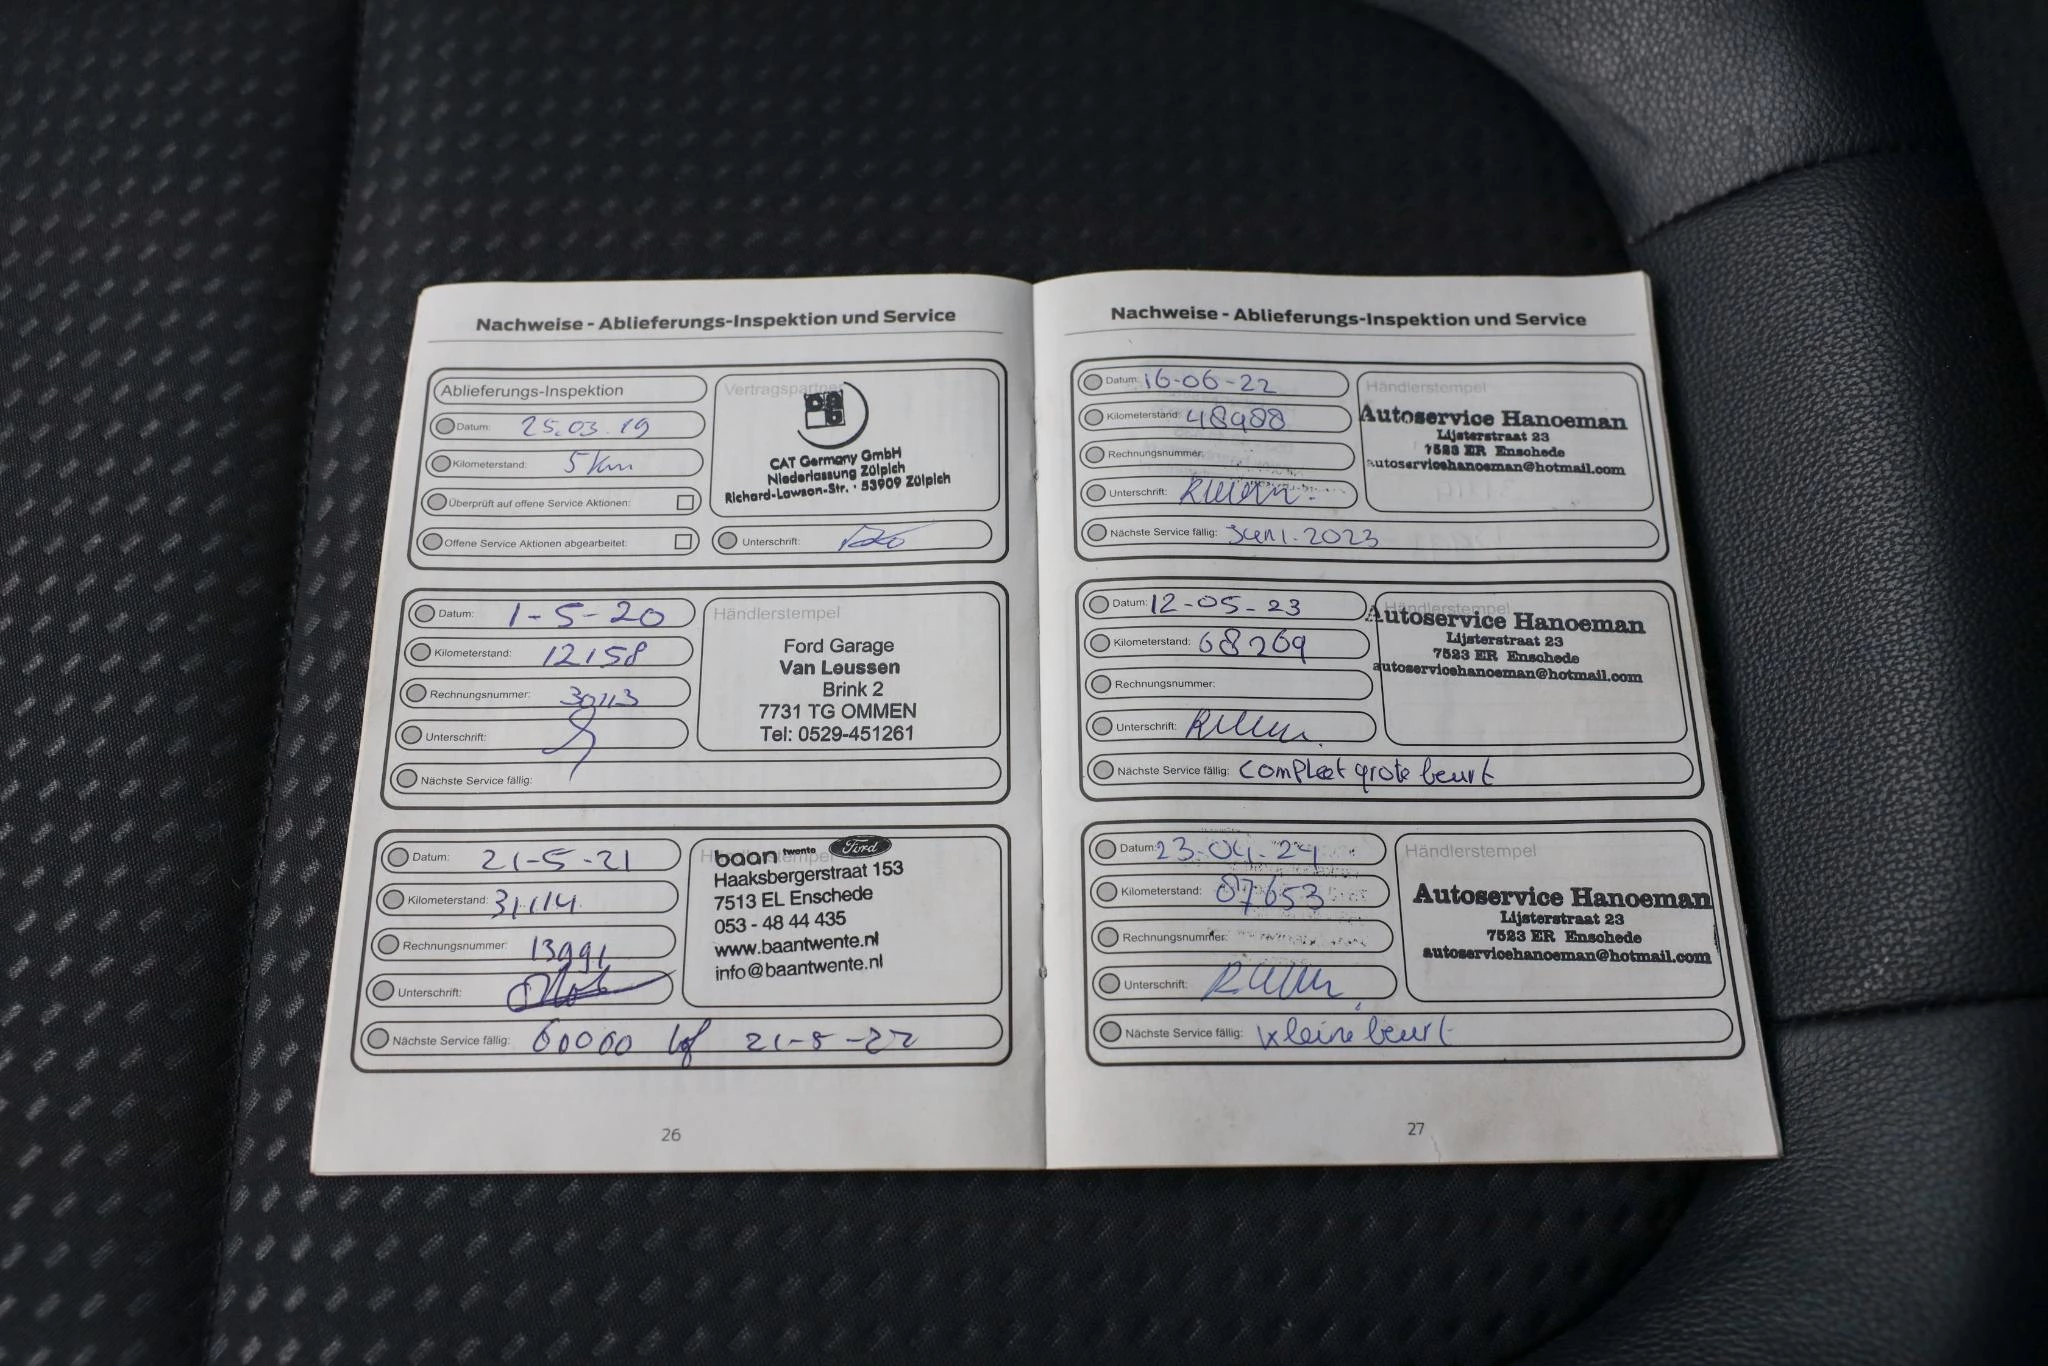 Nachweise - Ablieferungs-Inspektion und Service
Ablieferungs-Inspektion
Datum: 25.03.19
Kilometerstand: 5 km
Überprüft auf offene Service Aktionen:
Offene Service Aktionen abgearbeitet:
Vertragspartner
CAT Germany GmbH
Niederlassung Zülpich
Richard-Lawson-Str. · 53909 Zülpich
Unterschrift:
Datum: 1-5-20
Kilometerstand: 12158
Rechnungsnummer: 30113
Unterschrift:
Nächste Service fällig:
Händlerstempel
Ford Garage
Van Leussen
Brink 2
7731 TG OMMEN
Tel: 0529-451261
Datum: 21-5-21
Kilometerstand: 31114
Rechnungsnummer: 13991
Unterschrift:
Nächste Service fällig: 60000 of 21-5-22
Händlerstempel
baan twente Ford
Haaksbergerstraat 153
7513 EL Enschede
053 - 48 44 435
www.baantwente.nl
info@baantwente.nl
26
Nachweise - Ablieferungs-Inspektion und Service
Datum: 16-06-22
Kilometerstand: 48988
Rechnungsnummer:
Unterschrift:
Nächste Service fällig: Juni. 2023
Händlerstempel
Autoservice Hanoeman
Lijsterstraat 23
7523 ER Enschede
autoservicehanoeman@hotmail.com
Datum: 12-05-23
Kilometerstand: 68269
Rechnungsnummer:
Unterschrift:
Nächste Service fällig: compleet grote beurt
Händlerstempel
Autoservice Hanoeman
Lijsterstraat 23
7523 ER Enschede
autoservicehanoeman@hotmail.com
Datum: 23-04-24
Kilometerstand: 87653
Rechnungsnummer:
Unterschrift:
Nächste Service fällig: kleine beurt
Händlerstempel
Autoservice Hanoeman
Lijsterstraat 23
7523 ER Enschede
autoservicehanoeman@hotmail.com
27